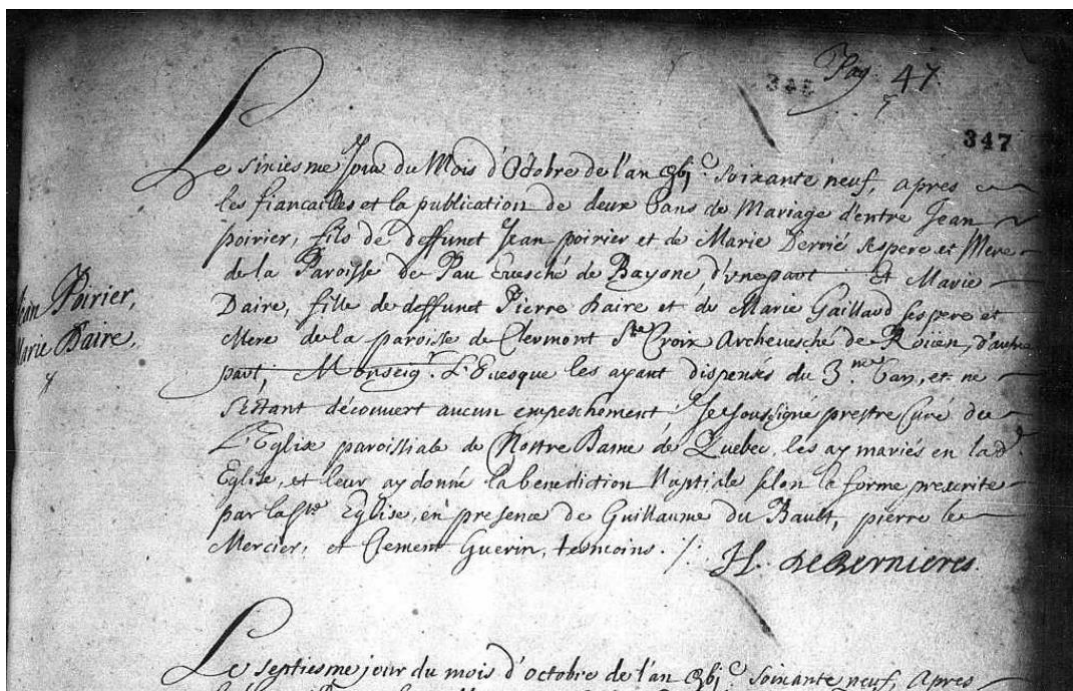 346
Pag. 47
347
Le sixiesme Jour du Mois d'Octobre de l'an gbjc. soixante neuf, apres
les fiancailles et la publication de deux bans de Mariage d'entre Jean
poirier, fils de deffunct Jean poirier et de Marie Derrié ses pere et Mere
de la Paroisse de Pau Evesché de Bayone d'une part Et Marie
Daire, fille de deffunct Pierre Daire et de Marie Gaillard ses pere et
Mere de la paroisse de Clermont Ste Croix Archevesché de Roüen, d'autre
part, Monseigr. L'Evesque les ayant dispensés du 3.me ban, et ne
s'estant découvert aucun empeschement; Je soussigné prestre Curé de
L'Eglise paroissiale de Nostre Dame de Quebec, les ay mariés en lad.
Eglise, et leur ay donné la benediction Nuptiale selon la forme prescrite
par la Ste Eglise, en presence de Guillaume du Bault, pierre le
Mercier, et Clement Guerin, tesmoins. /.
H. de Bernieres
Jean Poirier,
Marie Daire,
Le septiesme jour du mois d'octobre de l'an gbjc soixante neuf, Apres